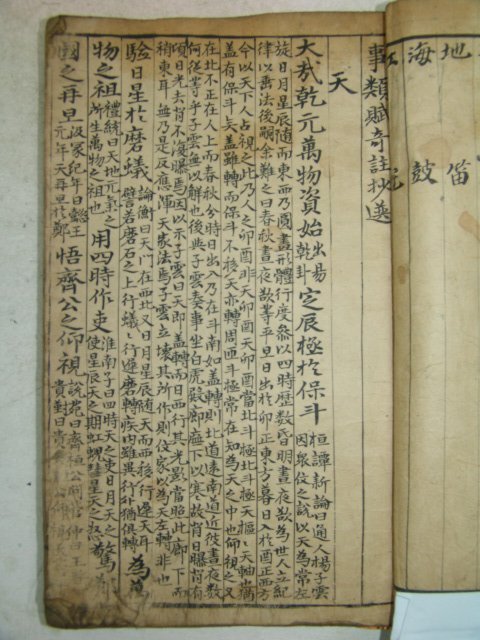 地笛
海鼓
事類賦奇註抄選
天
大哉乾元萬物資始出易乾卦定辰極於保斗桓譚新論曰通人楊子雲因衆儒之說以天為常左
旋日月星辰隨而東西乃圖畫形體行度參以四時歷數昏明晝夜欲為世人立紀
律以垂法後嗣余難之曰春秋晝夜欲等平旦日出於卯正東方暮日入於酉正西方
今以天下人占視之此乃人之卯酉非天卯酉天卯酉當北斗極北斗極天樞樞天軸也猶
盖有保斗矣盖雖轉而保斗不移天亦轉周匝斗極常在知為天之中也仰視之又
在北不正在人上而春秋分時日出入乃在斗南如盖轉則北道遠南道近彼晝夜數
何從等乎子雲無以解也後與子雲奏事坐白虎殿廊廡下以寒故背日曝背有
頃日光去背不復曝焉因以示子雲曰天即盖轉而日西行其光影當照此廊下而
稍東耳無乃是反應渾天家法焉子雲立壞其所作則儒家以為天左轉非也
驗日星於磨蟻論衡曰天門在西北又日月星辰隨天而西移行遲天耳譬若磨石之上行蟻蟻行遲磨轉疾內雖異行外猶俱轉為萬
物之祖禮統曰天地元氣之所生萬物之祖也用四時作吏淮南子曰四時天之吏日月天之使星辰天之期虹蜺彗星天之忌驚
國之再旦汲冢紀年曰懿王元年天再旦於鄭悟齊公之仰視說苑曰齊桓公問管仲曰王者貴對曰貴